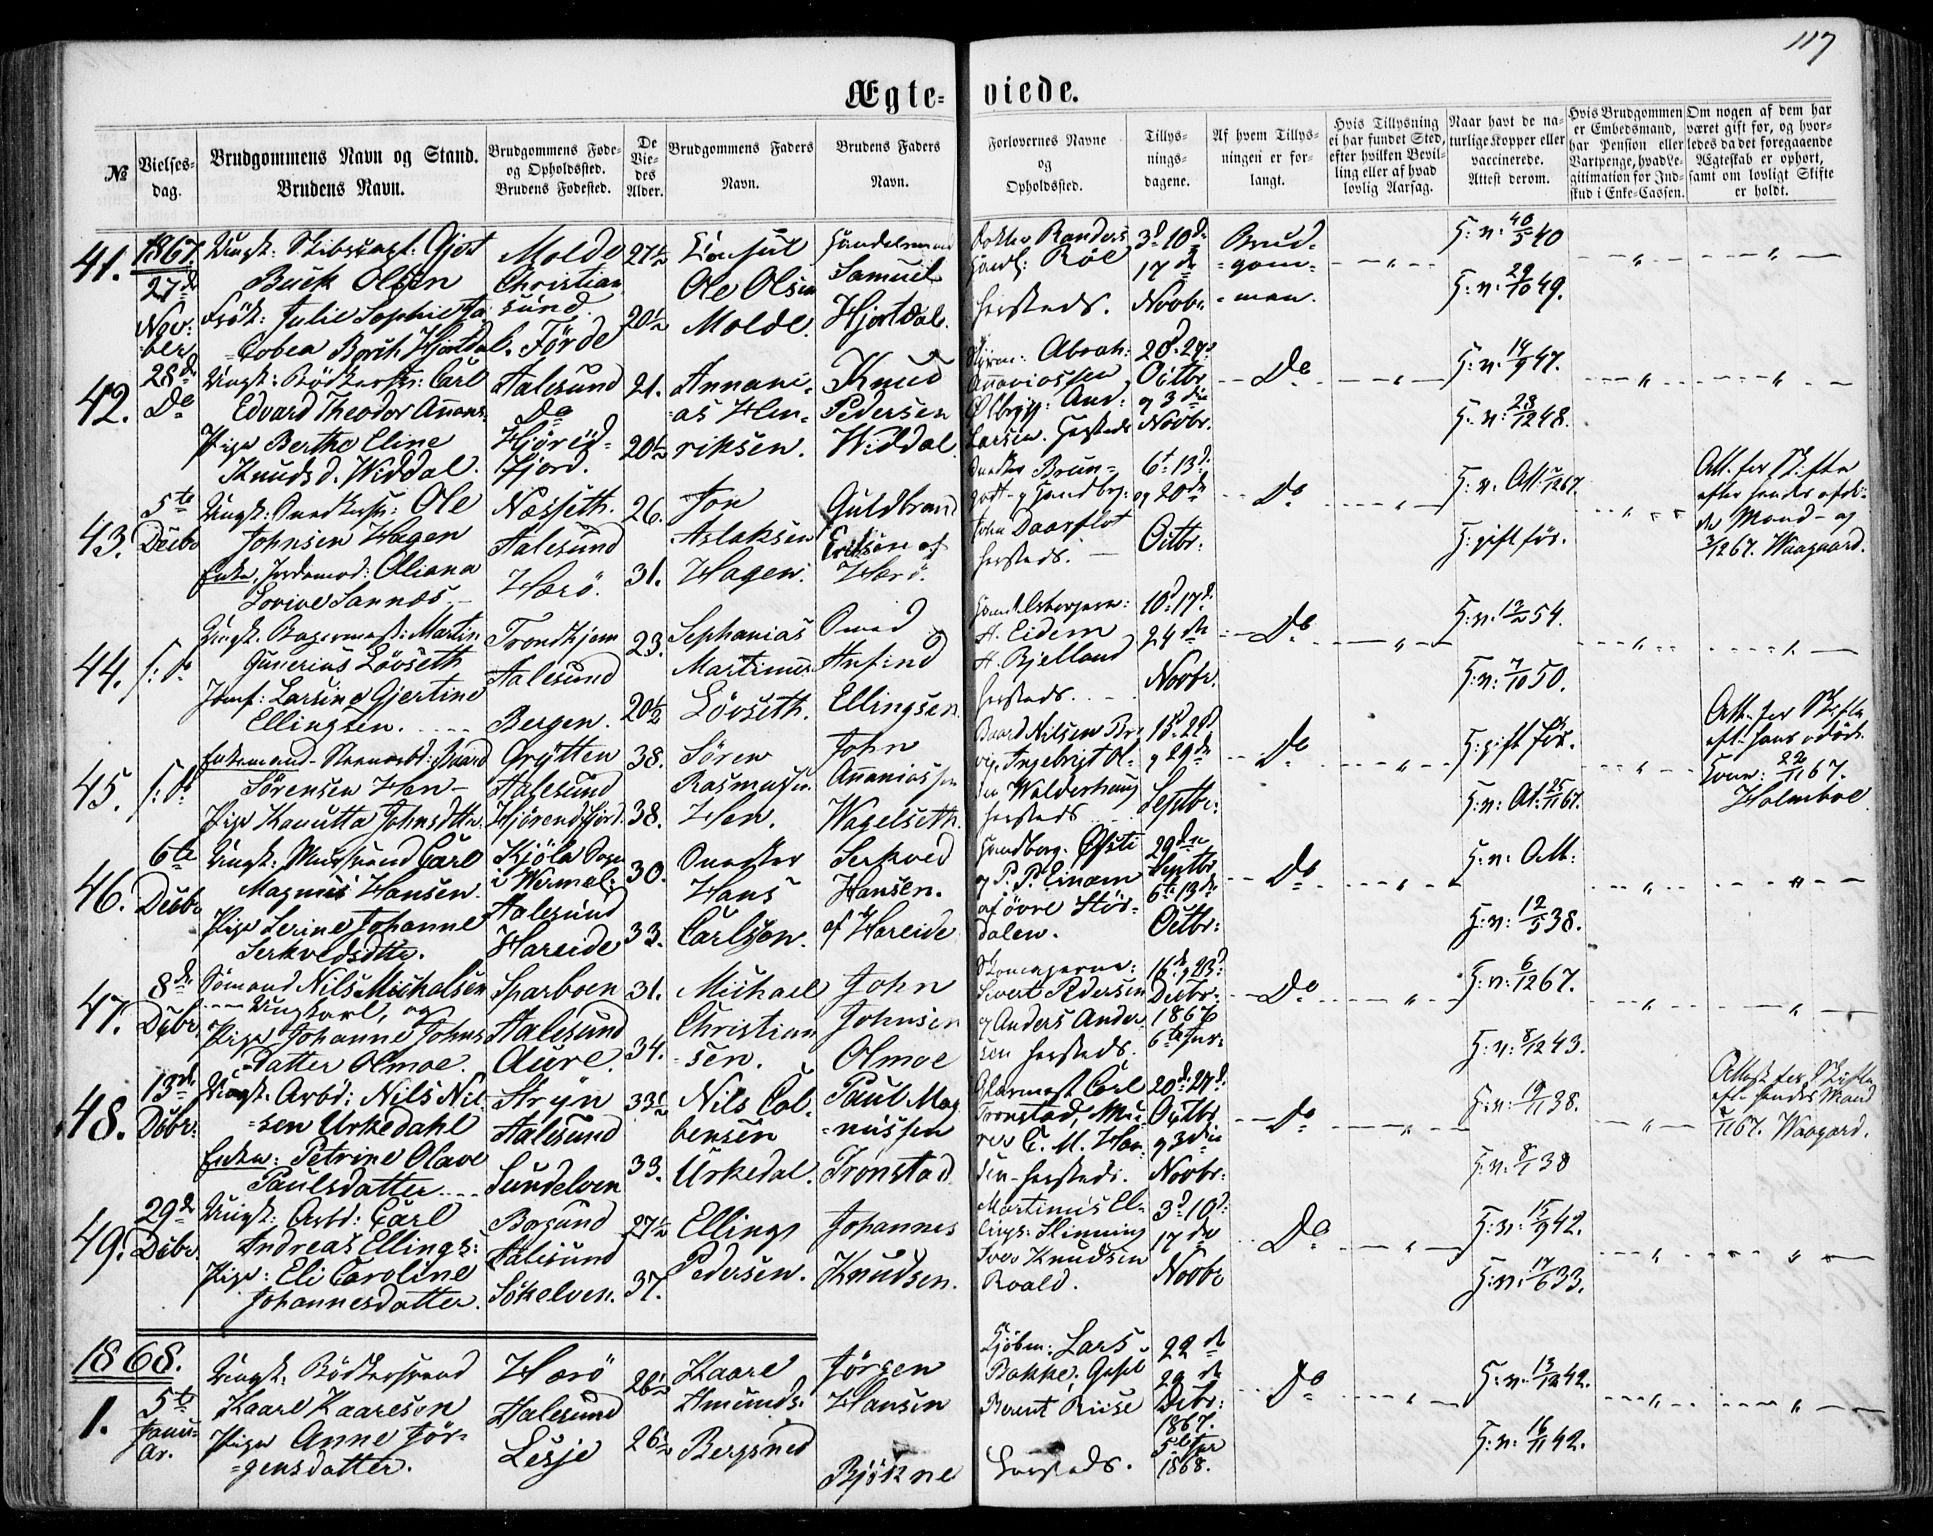 117
Ægte- viede.
№
Vielses-
dag.
Brudgommens Navn og Stand.
Brudens Navn.
Brudgommens Føde-
og Opholdssted.
Brudens Fødested.
De
Vie-
des
Alder.
Brudgommens Faders
Navn.
Brudens Faders
Navn.
Forlovernes Navne
og
Opholdssted.
Tillys-
nings-
dagene.
Af hvem Tillys-
ningen er for-
langt.
Hvis Tillysning
ei har fundet Sted,
efter hvilken Bevil-
ling eller af hvad
lovlig Aarsag.
Naar havt de na-
turlige Kopper eller
vaccinerede.
Attest derom.
Hvis Brudgommen
er Embedsmand,
har Pension eller
Vartpenge, hvad Le-
gitimation for Ind-
skud i Enke-Cassen.
Om nogen af dem har
været gift før, og hvor-
ledes da det foregaaende
Ægteskab er ophørt,
samt om lovligt Skifte
er holdt.
41.
1867.
27d
Nov:
ber
Ungk: Skibscapt: Gjert
Buck Olsen
Frøk: Julie Sophie Ja-
cobea Borch Hjortdal.
Molde
Christian
sund.
Førde
27½
20½
Consul
Ole Olsen
Molde.
Handelsmand
Samuel
Hjortdal.
Doktor Randers
Handl: Røe
hersteds.
3d 10d
17de
Novbr.
Brud-
gom-
men.
G: v: 40/5 40
G: v: 29/10 49.
42.
28d
Do
Ungk: Bødkersv: Carl
Edvard Theodor Anans.
Pige Berthe Eline
Knudsd. Widdal.
Aalesund
Do
Hjørid-
fjord.
21.
20½
Annani-
as Hen-
riksen.
Knud
Pedersen
Widdal
Abrah:
Ananiassen
And:
Larsen. hersteds
20d 27d
Octbr
og 3die
Novbr.
Do
G: v: 14/9 47.
G: v: 23/12 48.
43.
5te
Decbr
Ungk: Snedkersv: Ole
Johnsen Hagen
Enke, Jordemod: Oliana
Lovise Sannæs
Næsseth.
Aalesund
Harø.
26.
31.
Jon
Aslaksen
Hagen.
Guldbrand
Eriksen af
Harø.
Snedker Brun-
og Handbg:
John Daarflot
hersteds.
6t 13d
og 20de
Octbr:
Do
G: v. Att: /1267.
G: gift før.
Att. for Skifte
efter hendes afdø-
de Mand og
3/1267. Waagaard.
44.
s: D:
Ungk. Bagermest: Martin
Gunerius Løvseth
Jomf: Larsine Gjertine
Ellingsen.
Trondhjem
Aalesund
Bergen.
23.
20½
Sephanias
Martinus
Løvseth.
Smed
Anfind
Ellingsen.
Handelsborgern:
H. Eidem
H. Bjelland
hersteds.
10d 17d
24de
Novbr.
Do
G: v: 13/2 54.
G: v: 7/10 50.
45.
s: D:
Enkemand Baard
Sørensen Hen-
Pige Johnsdtt.
Grytten
Aalesund
Hjørendfjord.
38.
38.
Søren
Rasmussen
Hen.
John
Ananiassen
Wagelseth.
Baard Nilsen Br
vig, Ingebrigt Ol-
sen Walderhaug
hersteds
15d 22d
og 29de
Septbr:
Do
G: gift før.
G: v: At: 25/11 67.
Att. for Skifte
eft. hans afdøde
Kone: 22/11 67.
Holmboe
46.
6te
Decbr
Ungk: Carl
Magnus Hansen
Pige Serine Johanne
Serkvedsdtter.
Kjøla Sogn
i Wermel:
Aalesund
Hareide
30.
33.
Snedker
Hans
Carlsson.
Serkved
Hansen.
af Hareide
Handborg. Ofsti
og P. P. Einam
af øvre Stør-
dalen.
29de
Septbr
6te 13de
Octbr:
Do
G: v: Att:
G: v: 12/5 38.
47.
8de
Decbr
Sømand Nils Michalsen
Ungkarl, og
Pige Johanne Johns
Datter Olmoe.
Sparboen
Aalesund
Aure.
31.
34.
Michael
Christian
sen.
John
Johnsen
Olmoe
Skomagerne:
Sivert Pedersen
og Anders Ander
sen hersteds.
16de 23d
Decbr:
1866
6te Jan:
Do
G: v: 6/12 67.
G: v: 8/12 43.
48.
13de
Decbr:
Ungk. Arbd: Nils Nil-
sen Urkedahl
Enken: Petrine Olave
Paulsdatter
Stryn
Aalesund
Sundelven
33½
33.
Nils Col-
bensen
Urkedal.
Paul Mag
nussen
Tronstad
Glarmest Carl
Tronstad, Mu-
rer C. M. Han-
sen hersteds.
20d 27d
Octbr
og 3die
Novbr:
Do
G: v: 19/11 38.
G: v: 8/1 38
Attest for Skifte
eft. hendes Mand
/1167. Waagaard.
49.
29d
Decbr
Ungk: Arbd: Carl
Andreas Ellings:
Pige: Eli Caroline
Johannesdatter.
Borgund
Aalesund
Søkelven.
27½
37.
Ellings
Pedersen.
Johannes
Knudsen.
Martinus El-
lings: Slinning
Iver Knudsen
Roald.
3d 10d
17de
Novbr
Do
G: v: 15/9 42.
G: v: 17/6 33.
1868.
1.
5te
Janu-
ar.
Ungk. Bødkersvend
Kaare Kaareson
Pige Anne Jør-
gensdatter.
Harø
Aalesund
Lesje
26½
26½
Kaare
Amunds.
Bergsned
Jørgen
Hansen
Bjøkne
Kjøbm: Lars
Bakke,
Berent Riise
hersteds.
22de
29de
Decbr:
1867.
5te Jan
1868.
Do
G: v: 13/12 42.
G: v: 16/11 42.